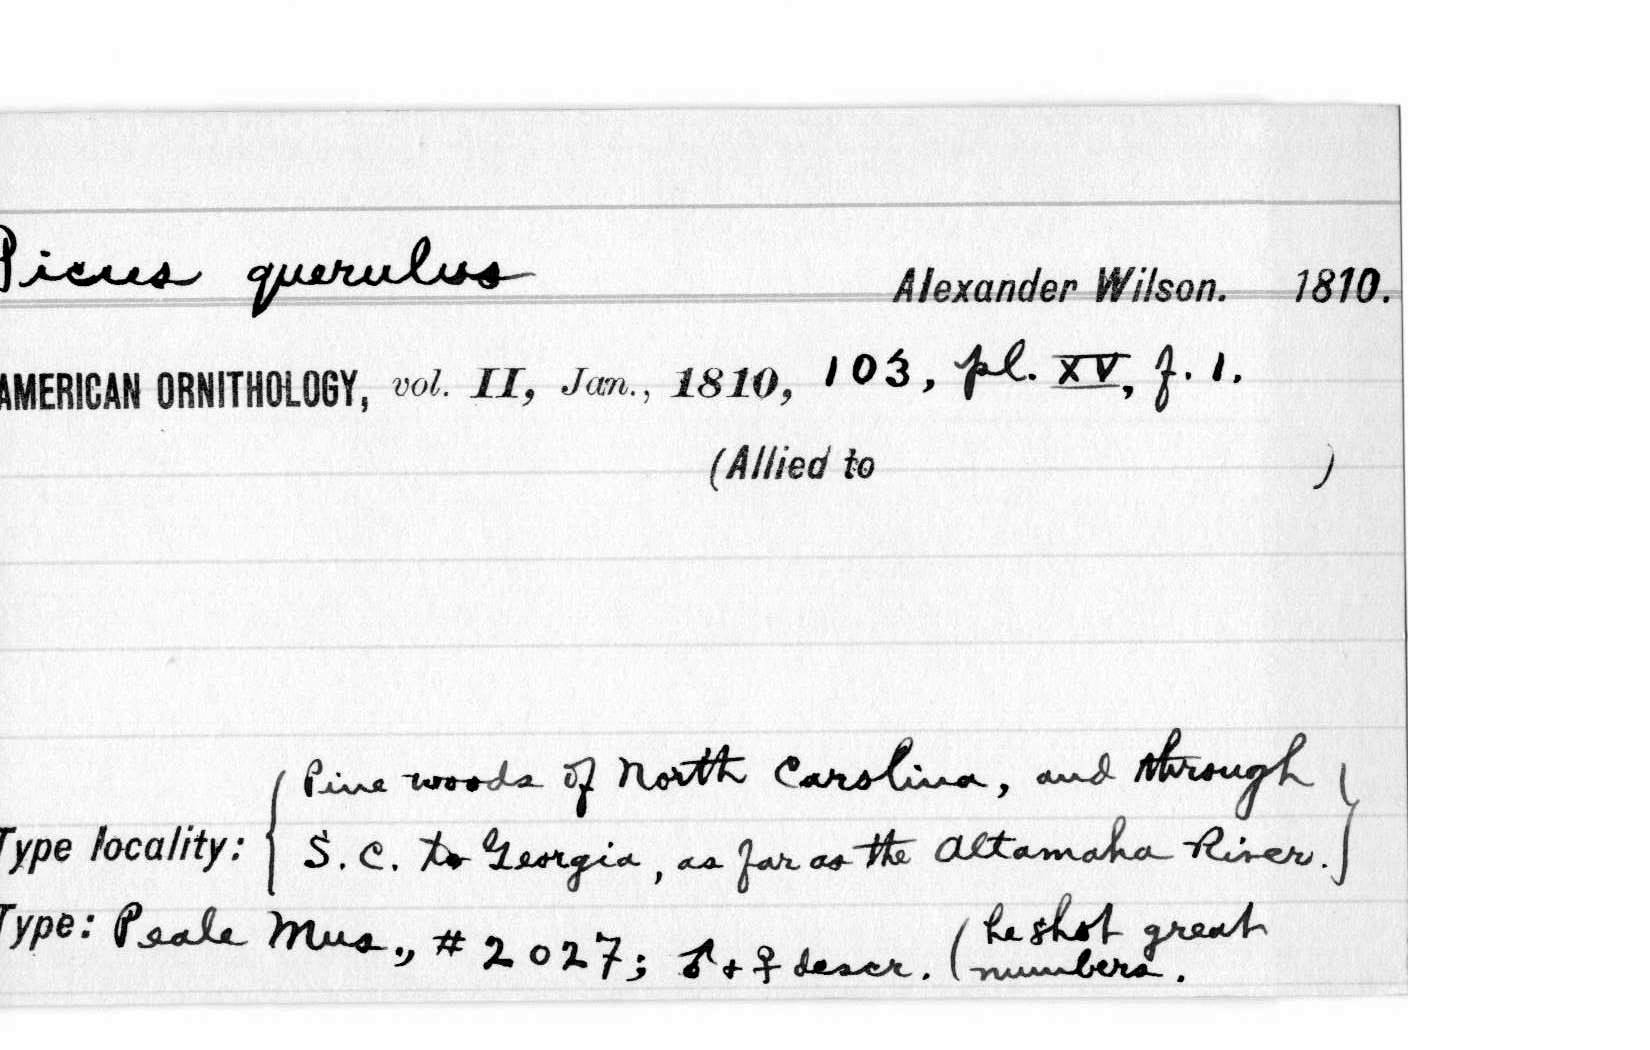 Picus querulus Alexander Wilson. 1810.
AMERICAN ORNITHOLOGY, vol. II, Jan., 1810, 103, pl. XV, f. 1.
(Allied to )
Pine woods of North Carolina, and through
Type locality: S. C. to Georgia, as far as the Altamaha River.
Type: Peale Mus., # 2027; ♂ + ♀ descr. (he shot great
numbers.